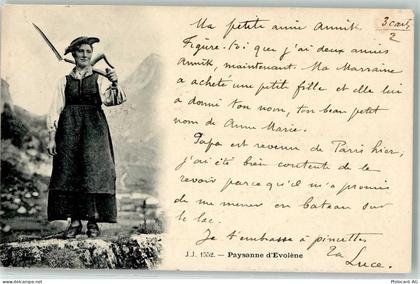 3 cart
2
Ma petite amie Annik
Figure-toi que j'ai deux amies
Annik, maintenant. Ma Marraine
a achete une petite fille et elle lui
a donné ton nom, ton beau petit
nom de Anne Marie.
Papa est revenu de Paris hier,
j'ai été bien contente de le
revoir parce qu'il m'a promis
de me mener en bateau sur
le lac.
Je t'embrasse à pincettes
Ta Luce.
J.J. 1552. – Paysanne d'Evolène